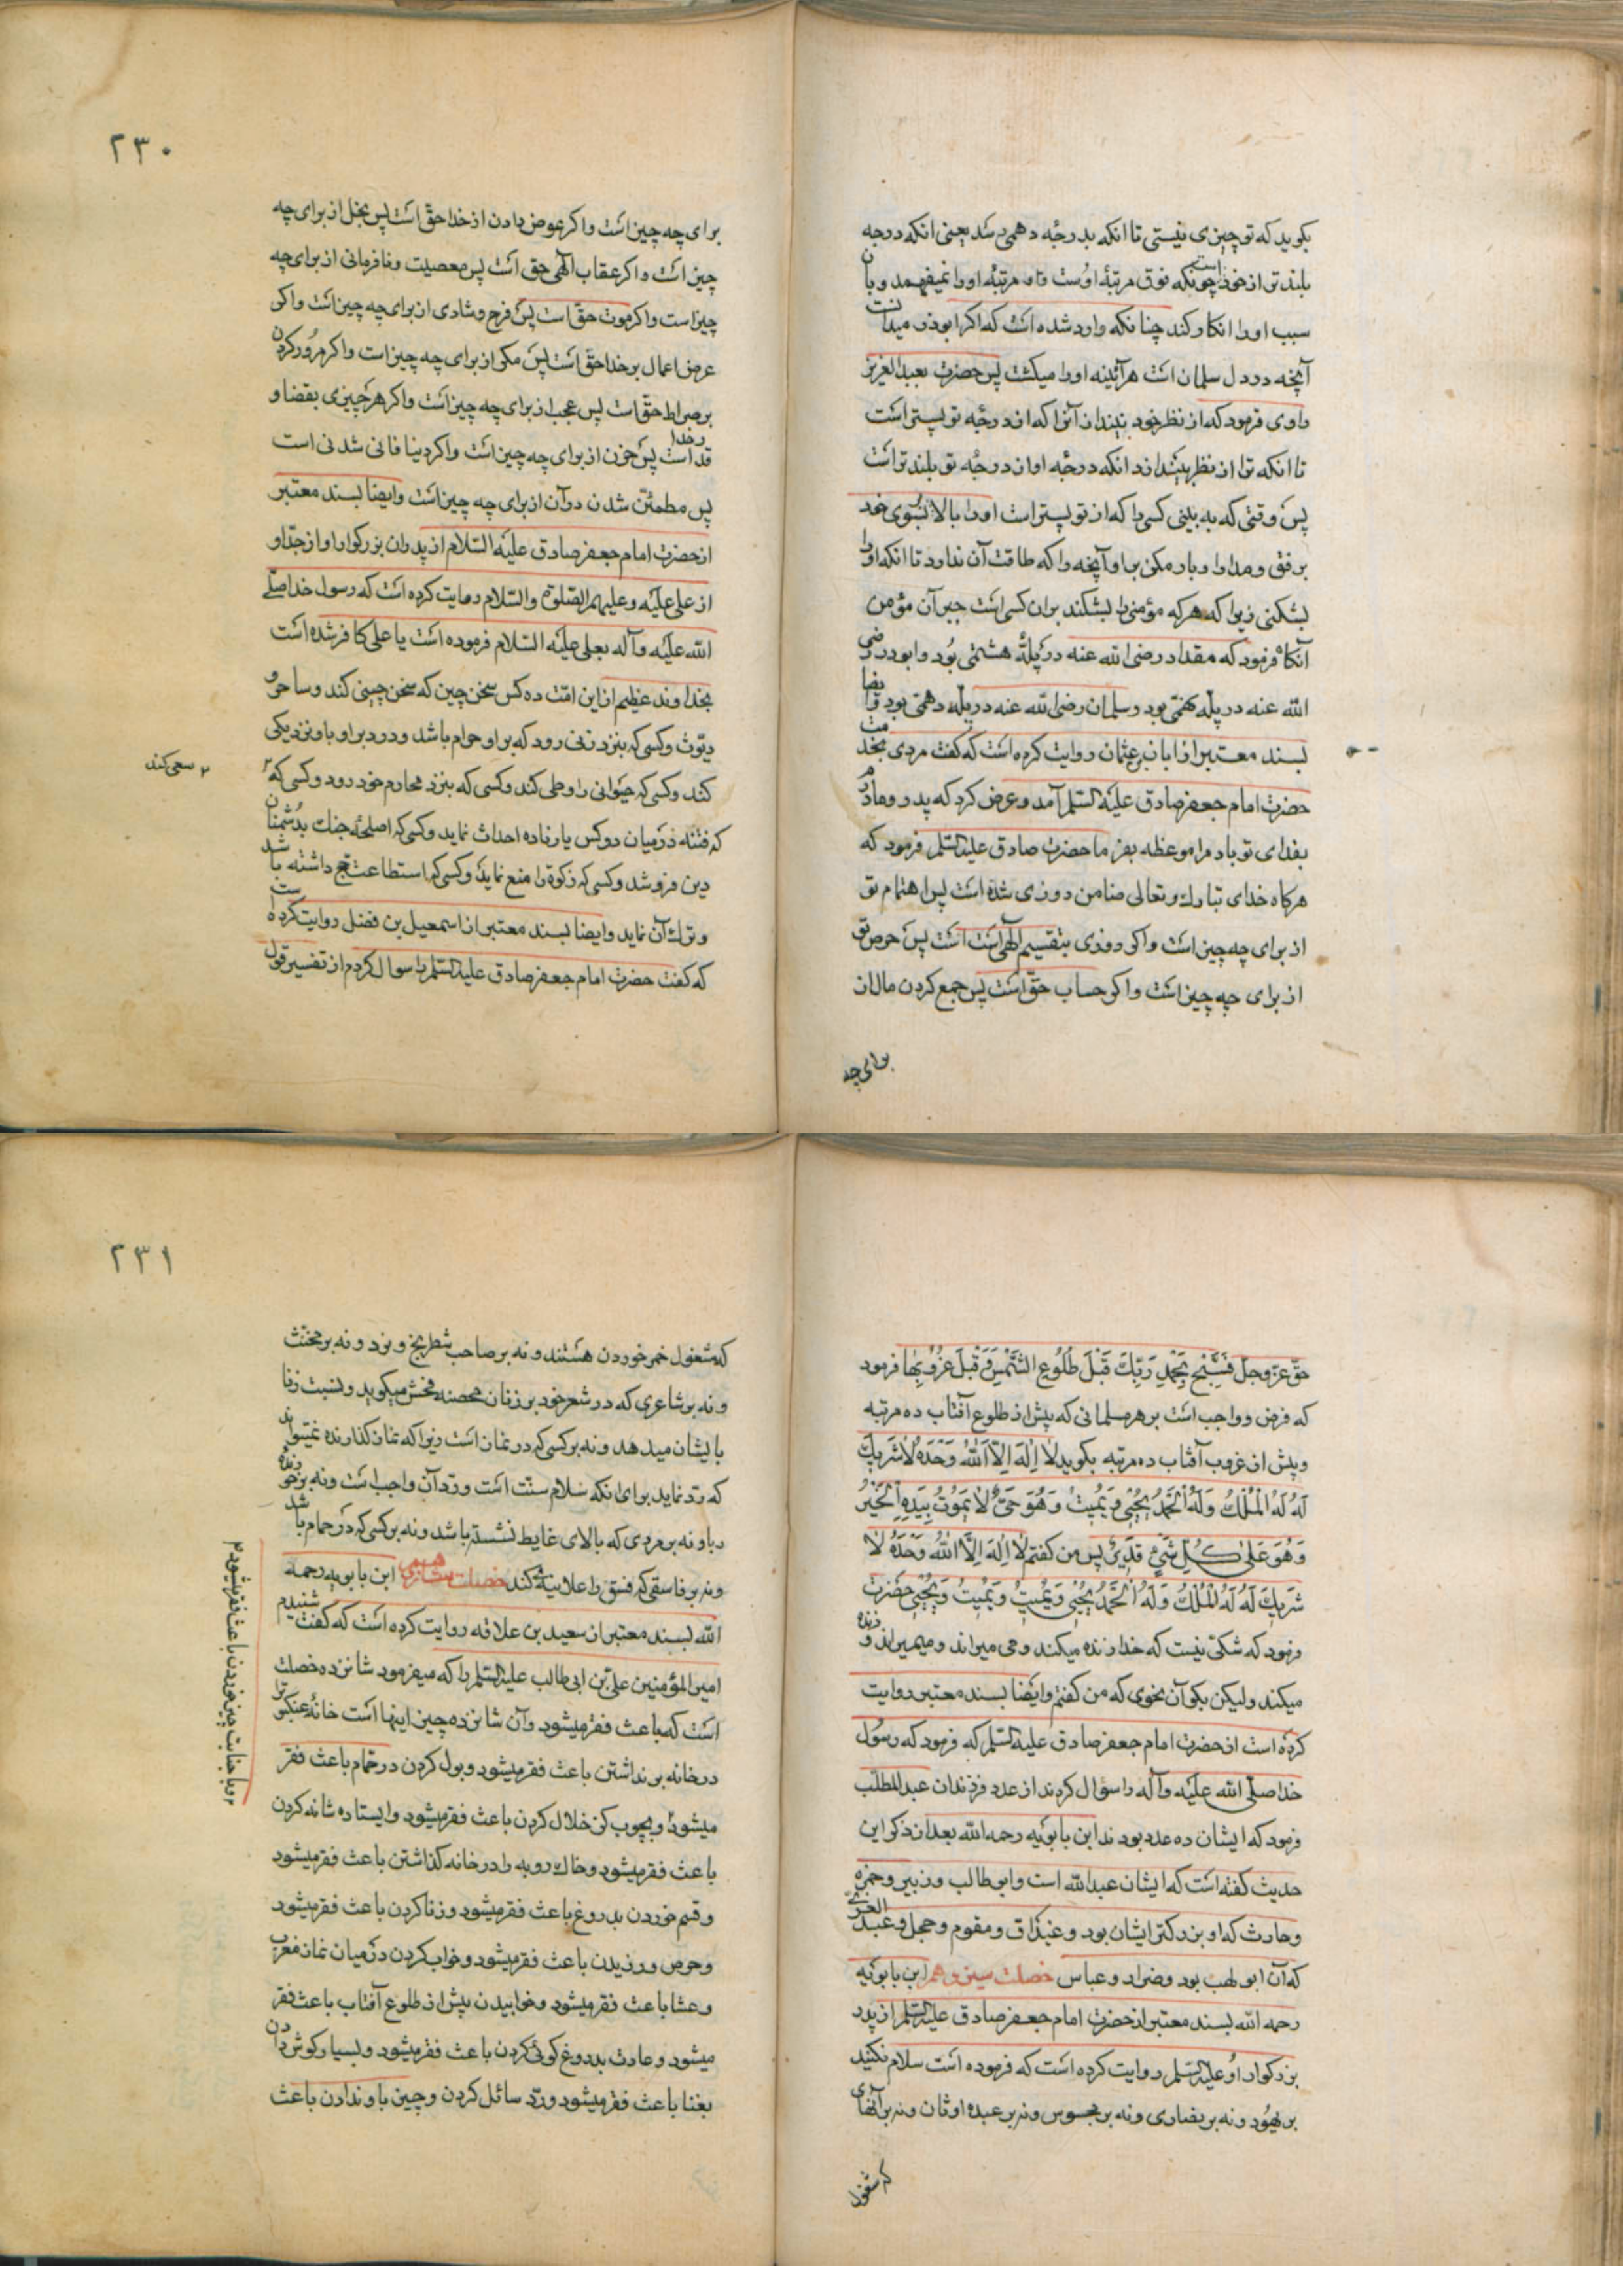 بکوید که تو چیزی نیستی تا انکه بدرجه دهمی رسد یعنی انکه درجه
بلندتر از خود است چونکه فوق مرتبهٔ اوست و او مرتبهٔ او را نمیفهمد و بان
سبب او را انکار کند چنانکه وارد شده است که اکر ابوذر میدانست
آنچه در دل سلمان است هرآینه او را میکشت پس حضرت بعبدالعزیز
راوی فرمود که از نظر خود بیندازان را که از درجه تو پستر است
تا انکه ترا از نظر بیندازد انکه درجه او از درجه تو بلندتر است
پس وقتی که به بینی کسی را که از تو پستر است او را بالا بسوی خود
برفق و مدارا و بار مکن براو آنچه را که طاقت آن ندارد تا انکه او را
بشکنی زیرا که هرکه مؤمنی را بشکند بران کس است جبر آن مؤمن
آنکاه فرمود که مقداد رضی الله عنه در پلهٔ هشتمی بود و ابوذر رضی
الله عنه در پله نهمی بود و سلمان رضی الله عنه در پله دهمی بود وایضا
بسند معتبر از ابان بن عثمان روایت کرده است که کفت مردی بخدمت
حضرت امام جعفر صادق علیه السلم آمد و عرض کرد که پدر و مادرم
بفدای تو باد مرا موعظه بفرما حضرت صادق علیه السلم فرمود که
هرکاه خدای تبارک و تعالی ضامن روزی شده است پس اهتمام تو
از برای چه چیز است واکر روزی بتقسیم الهی است است پس حرص تو
از برای چه چیز است واکر حساب حق است پس جمع کردن مال از
برای چه
۲۳۰
برای چه چیز است واکر عوض دادن از خدا حق است پس بخل از برای چه
چیز است واکر عقاب الهی حق است پس معصیت و نافرمانی از برای چه
چیز است واکر موت حق است پس فرح و شادی از برای چه چیز است واکر
عرض اعمال بر خدا حق است پس مکر از برای چه چیز است واکر مرور کردن
بر صراط حق است پس عجب از برای چه چیز است واکر هر چیزی بقضا و
قدر خدا است پس حزن از برای چه چیز است واکر دنیا فانی شدنی است
پس مطمئن شدن در آن از برای چه چیز است وایضا بسند معتبر
از حضرت امام جعفر صادق علیه السلام از پدران بزرکوار او از جد او
از علی علیه و علیهم الصلوة والسلام روایت کرده است که رسول خدا صلی
الله علیه وآله بعلی علیه السلام فرموده است یا علی کافر شده است
بخداوند عظیم از این امت ده کس سخن چین که سخن چینی کند و ساحر و
دیوث و کسی که بنزد زنی رود که بر او حرام باشد و در دبر او باو نزدیکی
کند و کسی که حیوانی را وطی کند و کسی که بنزد محارم خود رود و کسی که ۲
۲ سعی کند
که فتنه در میان دو کس یا زیاده احداث نماید و کسی که اصلحهٔ جنک بدشمنان
دین فروشد و کسی که زکوة را منع نماید و کسی که استطاعت حج داشته باشد
و ترک آن نماید وایضا بسند معتبر از اسمعیل بن فضل روایت کرده است
که کفت حضرت امام جعفر صادق علیه السلم را سوال کردم از تفسیر قول
حق عز وجل فَسَبِّح بِحَمدِ رَبِّکَ قَبلَ طُلُوعِ الشَّمسِ وَ قَبلَ غُرُوبِها فرمود
که فرض و واجب است بر هر مسلمانی که پیش از طلوع آفتاب ده مرتبه
و پیش از غروب آفتاب ده مرتبه بکوید لا اِلهَ اِلّا اللّهُ وَحدَهُ لا شَریکَ
لَهُ لَهُ المُلکُ وَلَهُ الحَمدُ یُحیی وَ یُمیتُ وَ هُوَ حَیٌّ لا یَمُوتُ بِیَدِهِ الخَیرُ
وَ هُوَ عَلی کُلِّ شَیءٍ قَدیرٌ پس من کفتم لا اِلهَ اِلَّا اللّهُ وَحدَهُ لا
شَریکَ لَهُ لَهُ المُلکُ وَلَهُ الحَمدُ یُحیی وَ یُمیتُ وَ یُمیتُ وَ یُحیی حضرت
فرمود که شکی نیست که خدا زنده میکند و می میراند و میمیراند و زنده
میکند ولیکن بکو آن نحوی که من کفتم وایضا بسند معتبر روایت
کرده است از حضرت امام جعفر صادق علیه السلم که فرمود که رسول
خدا صلی الله علیه وآله را سؤال کردند از عدد فرزندان عبدالمطلب
فرمود که ایشان ده عدد بودند ابن بابویه رحمه الله بعد از ذکر این
حدیث کفته است که ایشان عبدالله است وابوطالب و زبیر و حمزه
و حارث که او بزرکتر ایشان بود و غیداق و مقوم و حجل و عبد العزی
که آن ابو لهب بود و ضرار و عباس خصلت سیزدهم ابن بابویه
رحمه الله بسند معتبر از حضرت امام جعفر صادق علیه السلم از پدر
بزرکوار او علیه السلم روایت کرده است که فرموده است سلام نکنید
بر یهود و نه بر نصاری و نه بر مجوس و نه بر عبده اوثان و نه بر آنهای
که مشغول
۲۳۱
که مشغول خمر خوردن هستند و نه بر صاحب شطرنج و نرد و نه بر مخنث
و نه بر شاعری که در شعر خود بر زنان محصنه فحش میکوید و نسبت زنا
بایشان میدهد و نه بر کسی که در نماز است زیرا که نماز کذارنده نمیتواند
که رد نماید برای انکه سلام سنت است و رد آن واجب است و نه بر خورنده
ربا و نه بر مردی که بالای غایط نشسته باشد و نه بر کسی که در حمام باشد
و نه بر فاسقی که فسق را علانیة کند خصلت شانزدهم ابن بابویه رحمه
الله بسند معتبر از سعید بن علاقه روایت کرده است که کفت شنیدم
امیر المؤمنین علی بن ابی طالب علیه السلم را که میفرمود شانزده خصلت
است که باعث فقر میشود وآن شانزده چیز اینها است خانهٔ عنکبوترا
در خانه بر نداشتن باعث فقر میشود و بول کردن در حمام باعث فقر
میشود ۲ و بچوب کز خلال کردن باعث فقر میشود و ایستاده شانه کردن
۲ و با جنابت چیز خوردن باعث فقر میشود ۲
باعث فقر میشود و خاک روبه را در خانه کذاشتن باعث فقر میشود
و قسم خوردن بدروغ باعث فقر میشود و زنا کردن باعث فقر میشود
و حرص ورزیدن باعث فقر میشود و خواب کردن در میان نماز مغرب
و عشا باعث فقر میشود و خوابیدن پیش از طلوع آفتاب باعث فقر
میشود و عادت بدروغ کوئی کردن باعث فقر میشود و بسیار کوش دادن
بغنا باعث فقر میشود و رد سائل کردن و چیز باو ندادن باعث